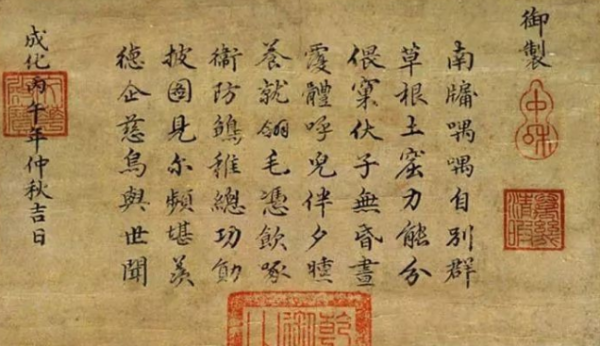 御製
中和
南牖喁喁自別群
草根土窟力能分
偎窠伏子無昏晝
覆體呼兒伴夕曛
養就翎毛憑飲啄
衛防鶵稚總功勛
披圖見爾頻堪羨
德企慈烏與世聞
成化丙午年仲秋吉日